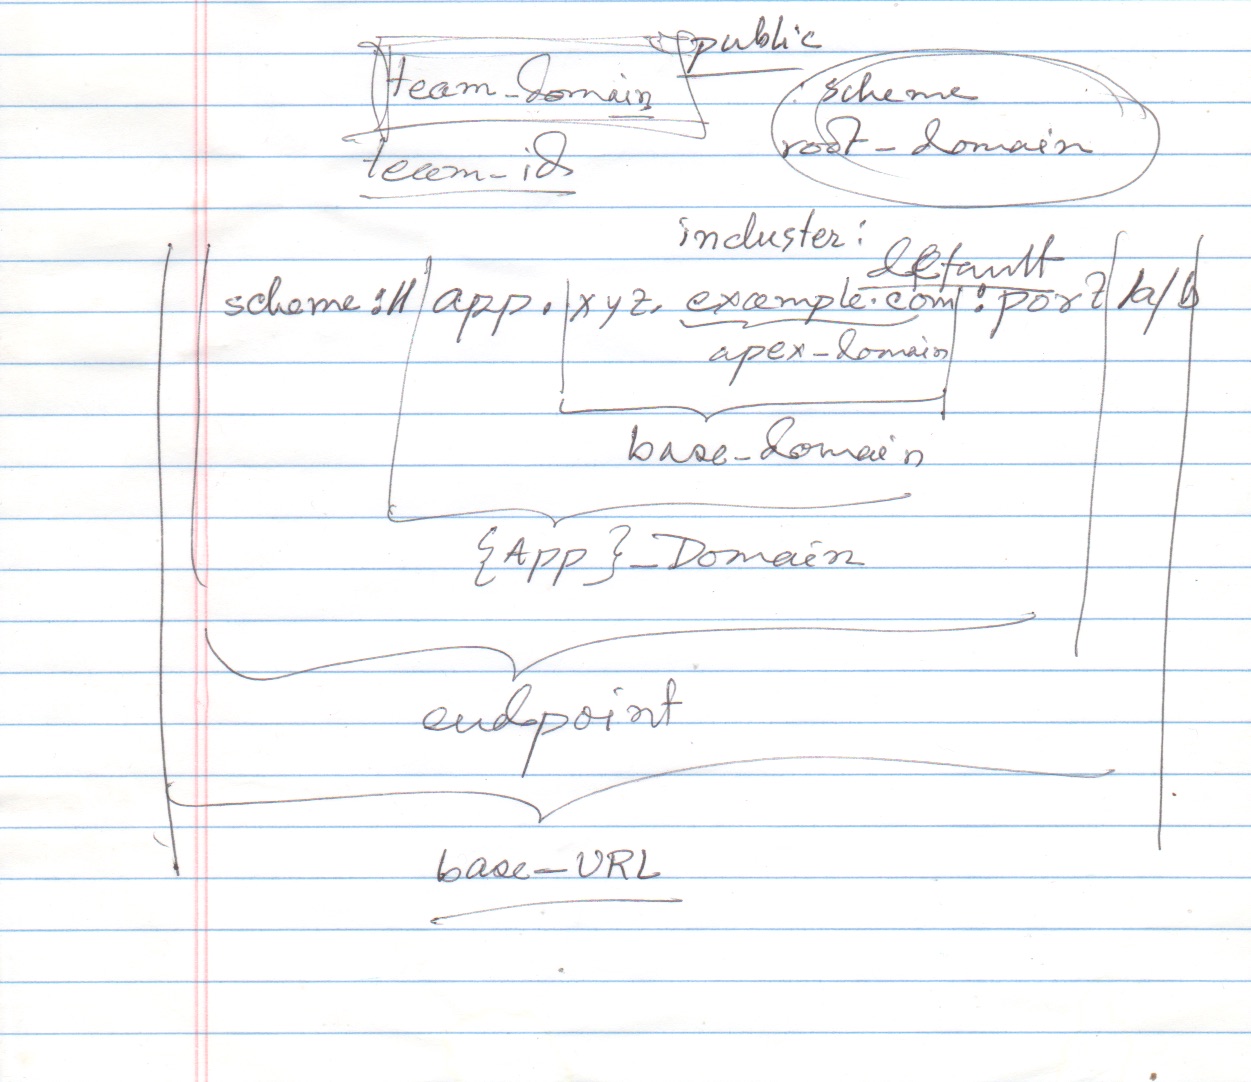 public
team_domain
scheme
root_domain
team_id
incluster:
default
scheme:// app. xyz. example.com :port /a/b
apex_domain
base_domain
{App}_Domain
endpoint
base_URL